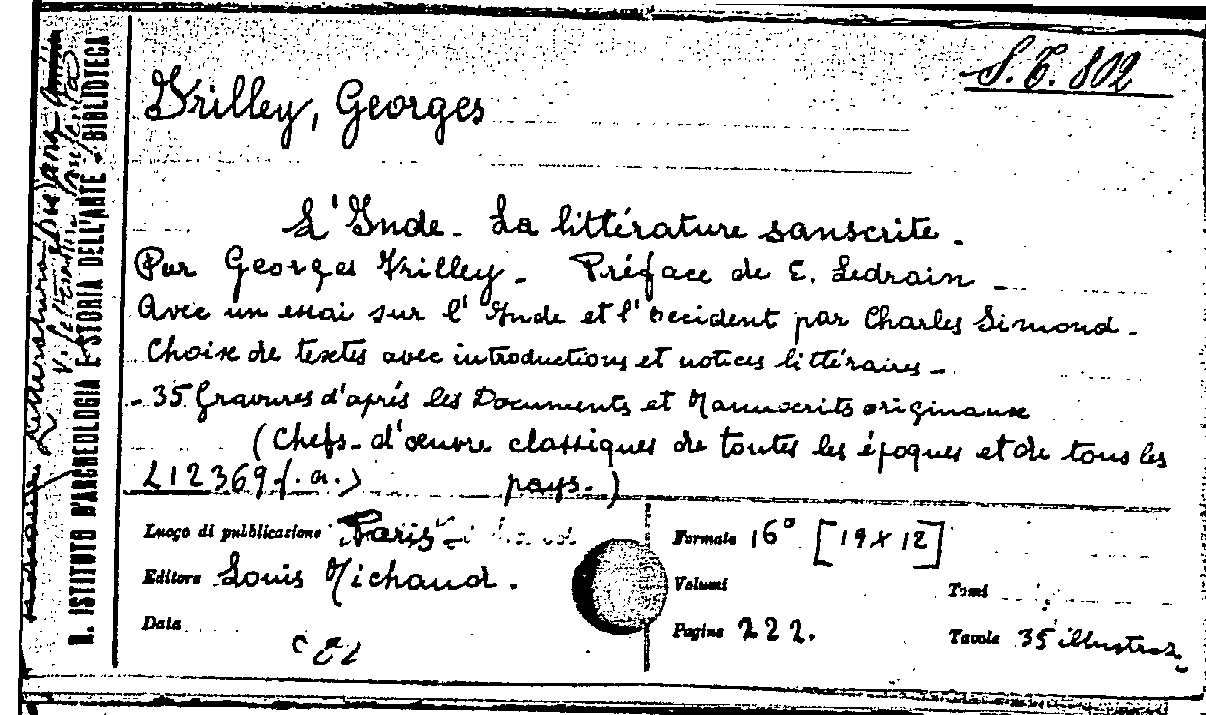 S.T. 802
Vrilley, Georges
L'Inde - La littérature sanscrite.
Par Georges Vrilley - Préface de E. Ledrain -
Avec un essai sur l'Inde et l'Occident par Charles Simond -
Choix de textes avec introductions et notices littéraires -
- 35 Gravures d'après les Documents et Manuscrits originaux
(Chefs-d'œuvre classiques de toutes les époques et de tous les
L12369 (.a.) pays.)
Luogo di pubblicazione Paris
Formato 16° [19 x 12]
Editore Louis Michaud.
Volumi
Tomi
Data
Pagine 222.
Tavole 35 illustraz.
R. ISTITUTO D'ARCHEOLOGIA E STORIA DELL'ARTE - BIBLIOTECA